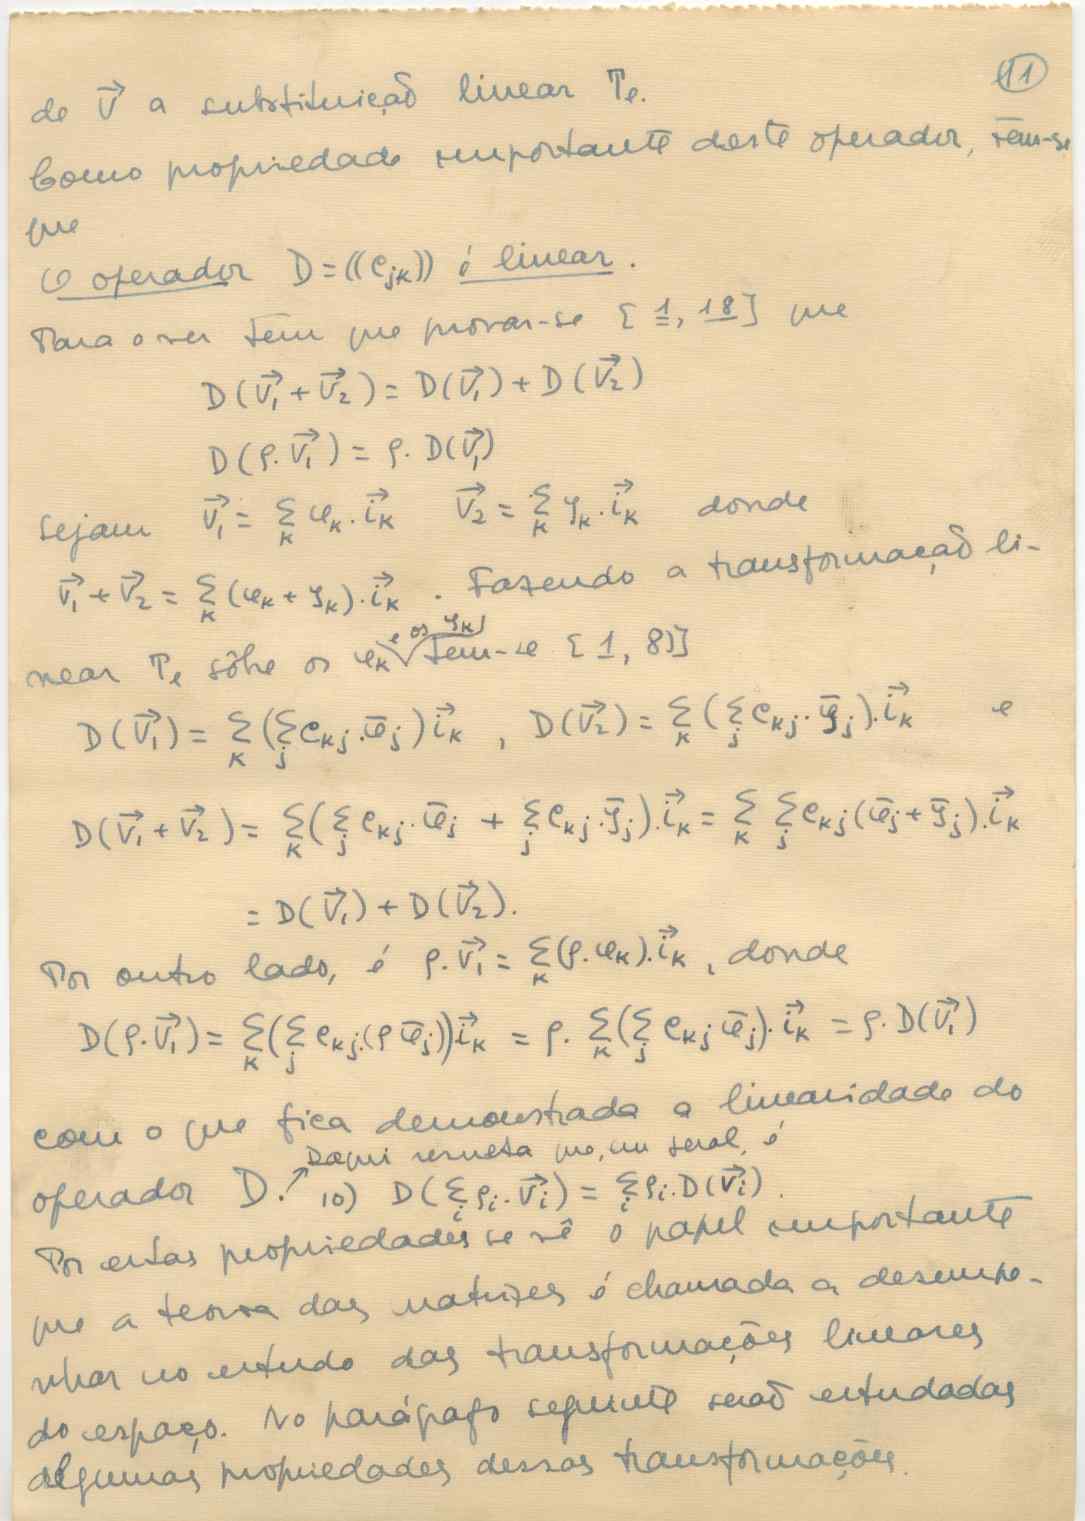 11
de V⃗ a substituição linear Tₑ.
Como propriedade importante deste operador, tem-se
que
O operador D = ((e_jk)) é linear.
Para o ver tem que provar-se [1, 18] que
D(V⃗₁ + V⃗₂) = D(V⃗₁) + D(V⃗₂)
D(ρ.V⃗₁) = ρ. D(V⃗₁)
sejam V⃗₁ = Σ_k φ_k . i⃗_k V⃗₂ = Σ_k ψ_k . i⃗_k donde
V⃗₁ + V⃗₂ = Σ_k (φ_k + ψ_k). i⃗_k . Fazendo a transformação li-
near Tₑ sôbre os φ_k e os ψ_k, tem-se [1, 8)]
D(V⃗₁) = Σ_k (Σ_j e_kj . φ̄_j) i⃗_k , D(V⃗₂) = Σ_k (Σ_j e_kj . ψ̄_j). i⃗_k e
D(V⃗₁ + V⃗₂) = Σ_k (Σ_j e_kj . φ̄_j + Σ_j e_kj . ψ̄_j). i⃗_k = Σ_k Σ_j e_kj (φ̄_j + ψ̄_j). i⃗_k
= D(V⃗₁) + D(V⃗₂).
Por outro lado, é ρ.V⃗₁ = Σ_k (ρ.φ_k). i⃗_k , donde
D(ρ.V⃗₁) = Σ_k (Σ_j e_kj . (ρ φ̄_j)) i⃗_k = ρ. Σ_k (Σ_j e_kj φ̄_j). i⃗_k = ρ. D(V⃗₁)
com o que fica demonstrada a linearidade do
operador D. Daqui resulta que, em geral, é
10) D(Σ_i ρ_i . V⃗_i) = Σ_i ρ_i . D(V⃗_i).
Por estas propriedades se vê o papel importante
que a teoria das matrizes é chamada a desempe-
nhar no estudo das transformações lineares
do espaço. No parágrafo seguinte serão estudadas
algumas propriedades dessas transformações.